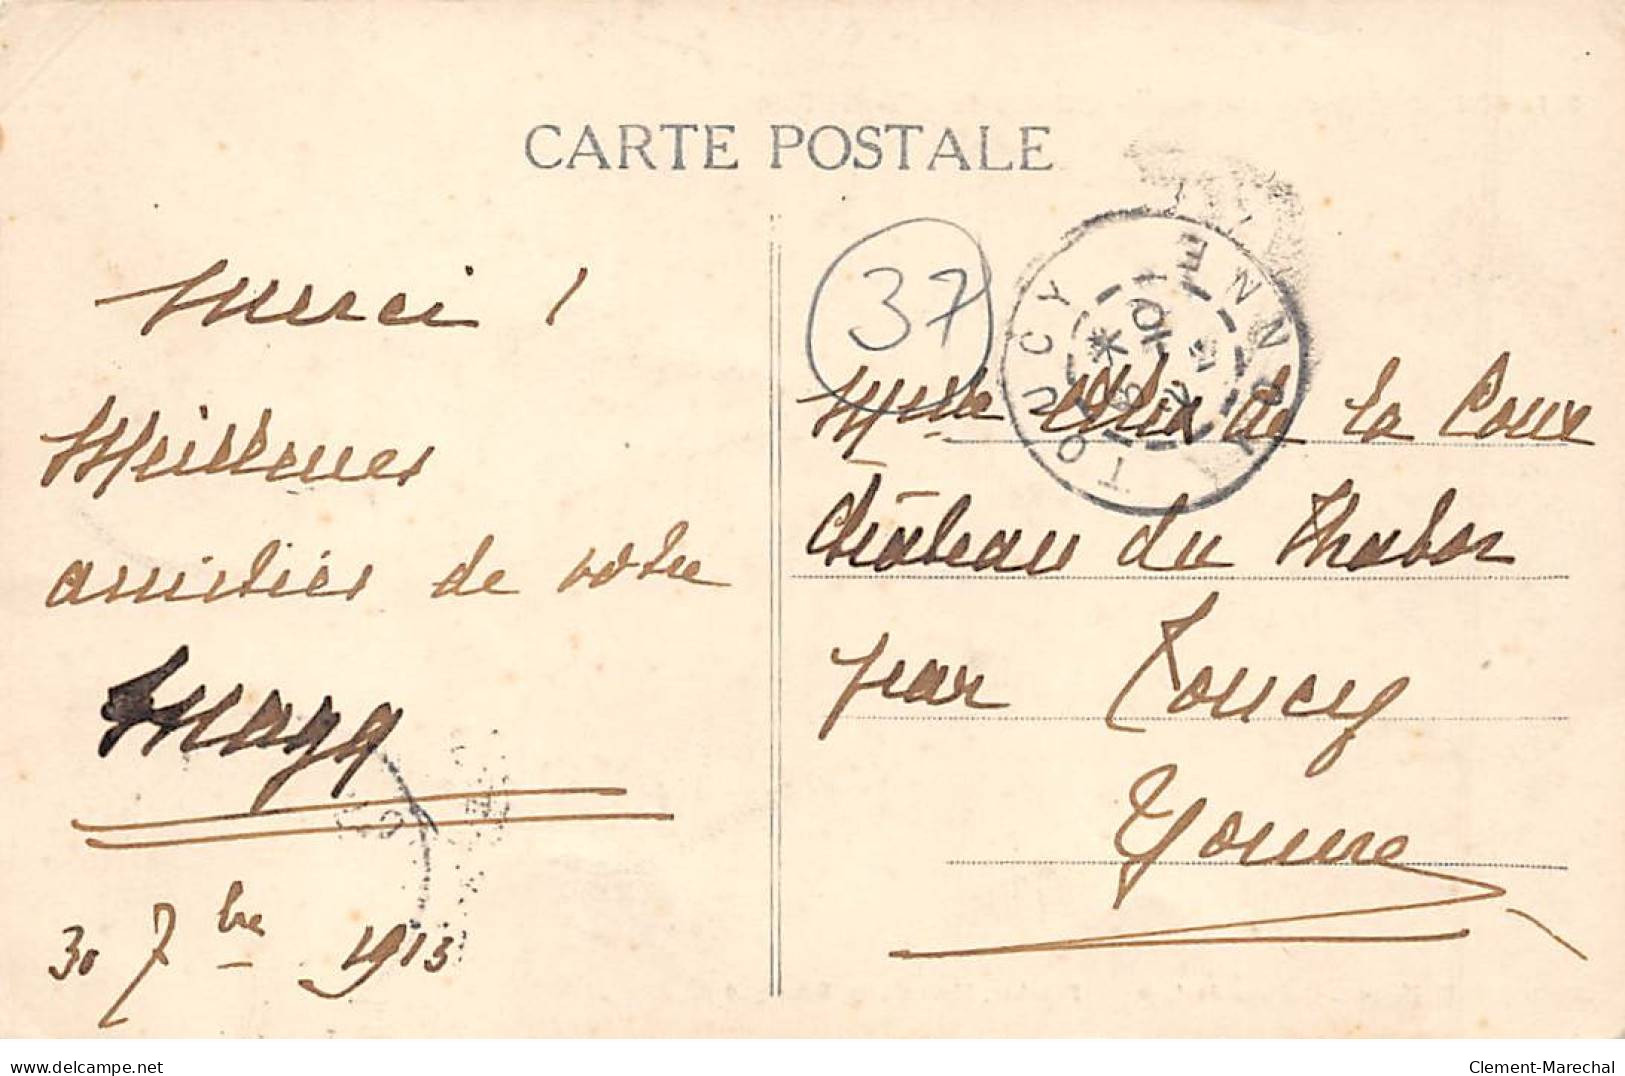 CARTE POSTALE
Merci !
Meilleures
amitiés de votre
Magg
30 7bre 1913
37
TOUCY YONNE
Mlle Alix de la Coux
Château du Thabor
par Toucy
Yonne
delcampe.net
Clement-Marechal